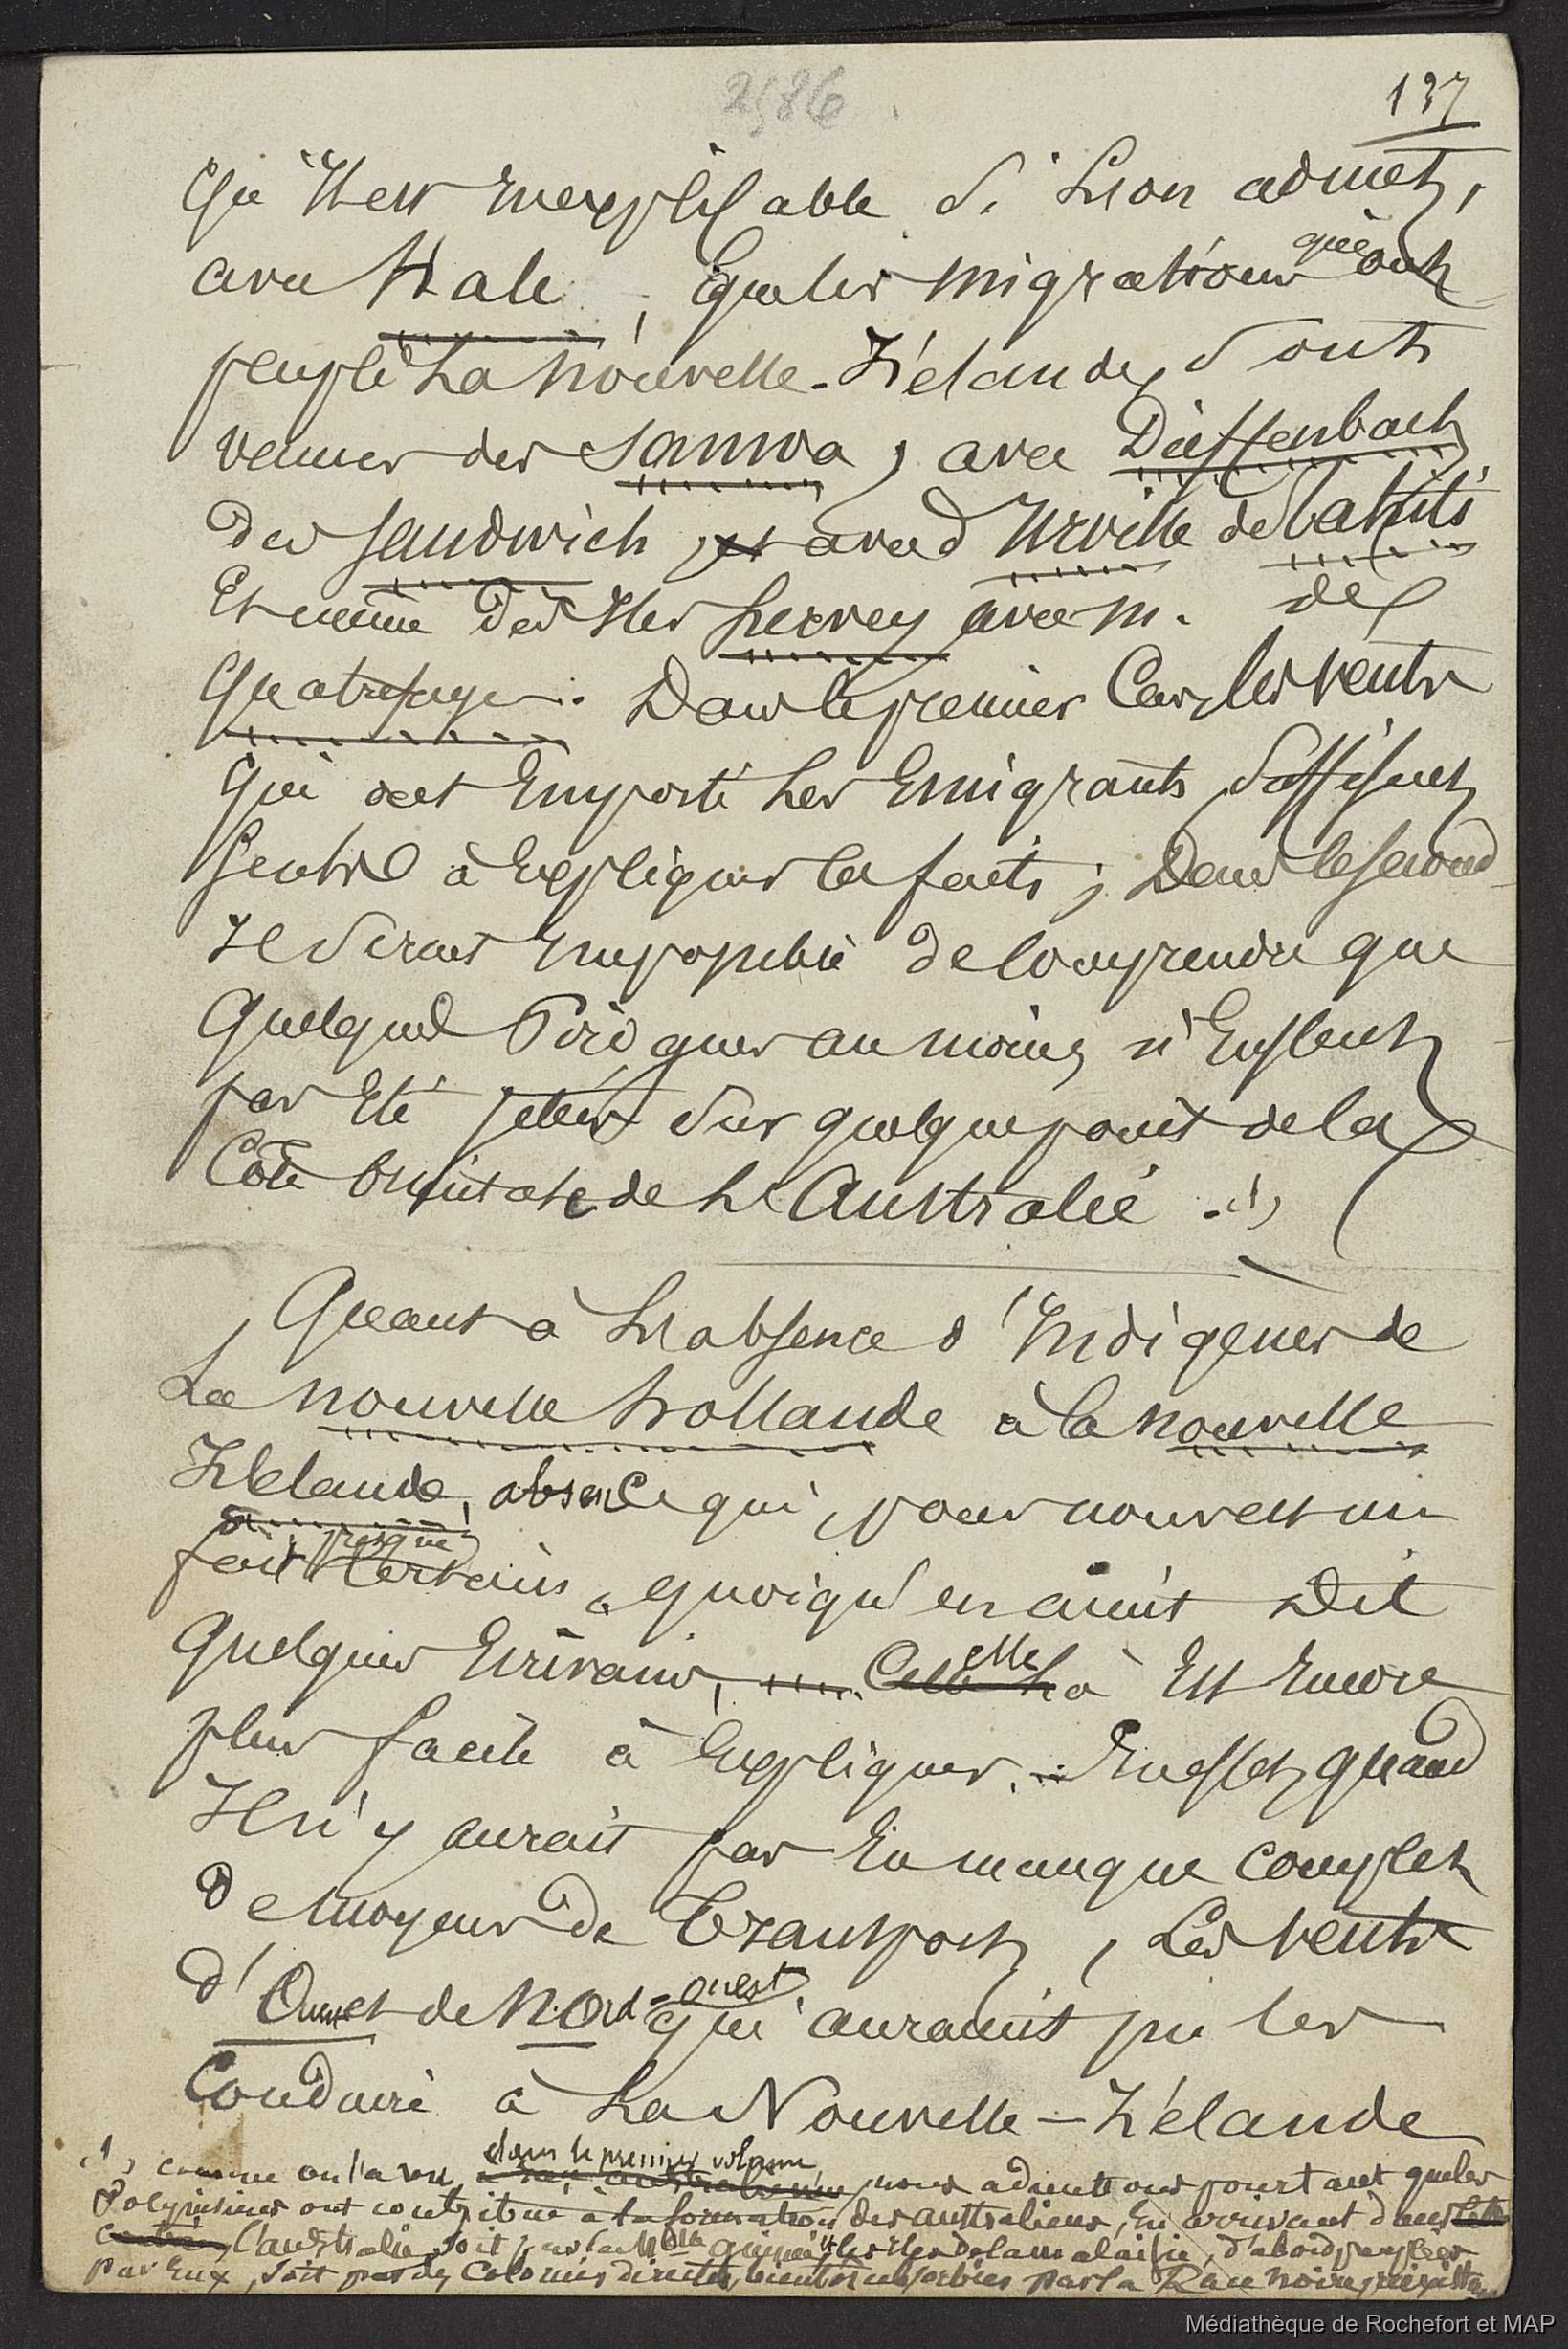 2586
137
qu'Il est Inexplicable Si L'on admet,
avec Hale, que les migrations qui ont
peuplé La Nouvelle-Zélande, Sont
venues des Samoa, avec Dieffenbach
des Sandwich, et avec d'Urville de Tahiti
Et même des Iles Hervey avec M. de
Quatrefages. Dans le premier Cas, les vents
qui ont Emporté Les Emigrants Suffisent
Seuls à Expliquer les faits ; Dans le second
Il Serait Impossible de Comprendre que
Quelques Pirogues au moins n'Eussent
pas Eté jetées Sur quelque point de la
Côte Orientale de L'Australie. (1)
Quant à L'absence d'Indigènes de
La Nouvelle Hollande à la Nouvelle
Zélande, absence qui, pour nous est un
fait presque Certain, quoiqu'en aient Dit
Quelques Ecrivains, Celle elle là Est Encore
plus facile à Expliquer. En effet, quand
Il n'y aurait pas Eu manque complet
de moyens de Transport, Les vents
d'Ouest et de Nord-ouest qui auraient pu les
Conduire à La Nouvelle-Zélande
(1) comme on l'a vu, dans le premier volume nous admettons pourtant que les
Polynésiens ont contribué à la formation des Australiens, En arrivant dans
l'Australie, soit par la Nlle guinée et les Iles de la malaisie, d'abord peuplées
par Eux, Soit par des Colonies directes, bientôt absorbées par la Race noire préexistante
Médiathèque de Rochefort et MAP